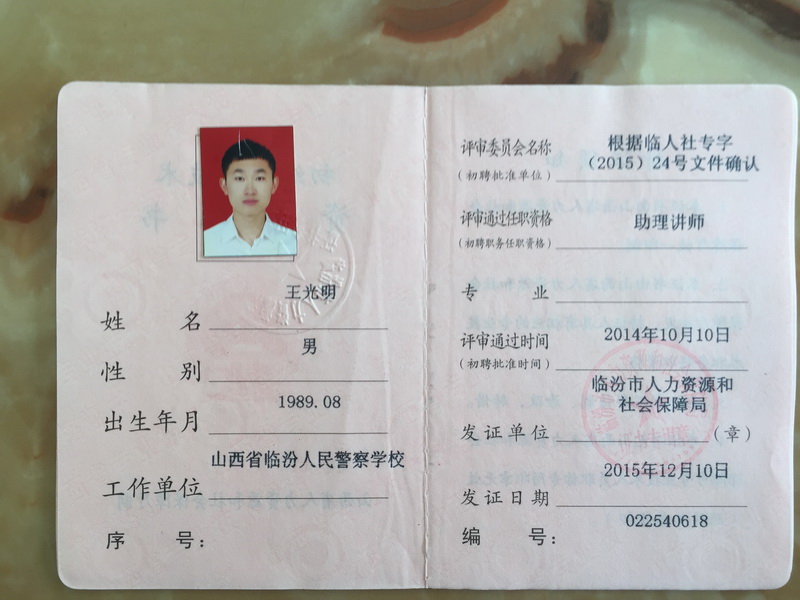 王光明
姓 名
男
性 别
1989.08
出生年月
山西省临汾人民警察学校
工作单位
序 号：
评审委员会名称
根据临人社专字
（2015）24号文件确认
（初聘批准单位）
评审通过任职资格
助理讲师
（初聘职务任职资格）
专 业
评审通过时间
2014年10月10日
（初聘批准时间）
临汾市人力资源和
社会保障局
发证单位
（章）
2015年12月10日
发证日期
022540618
编 号：